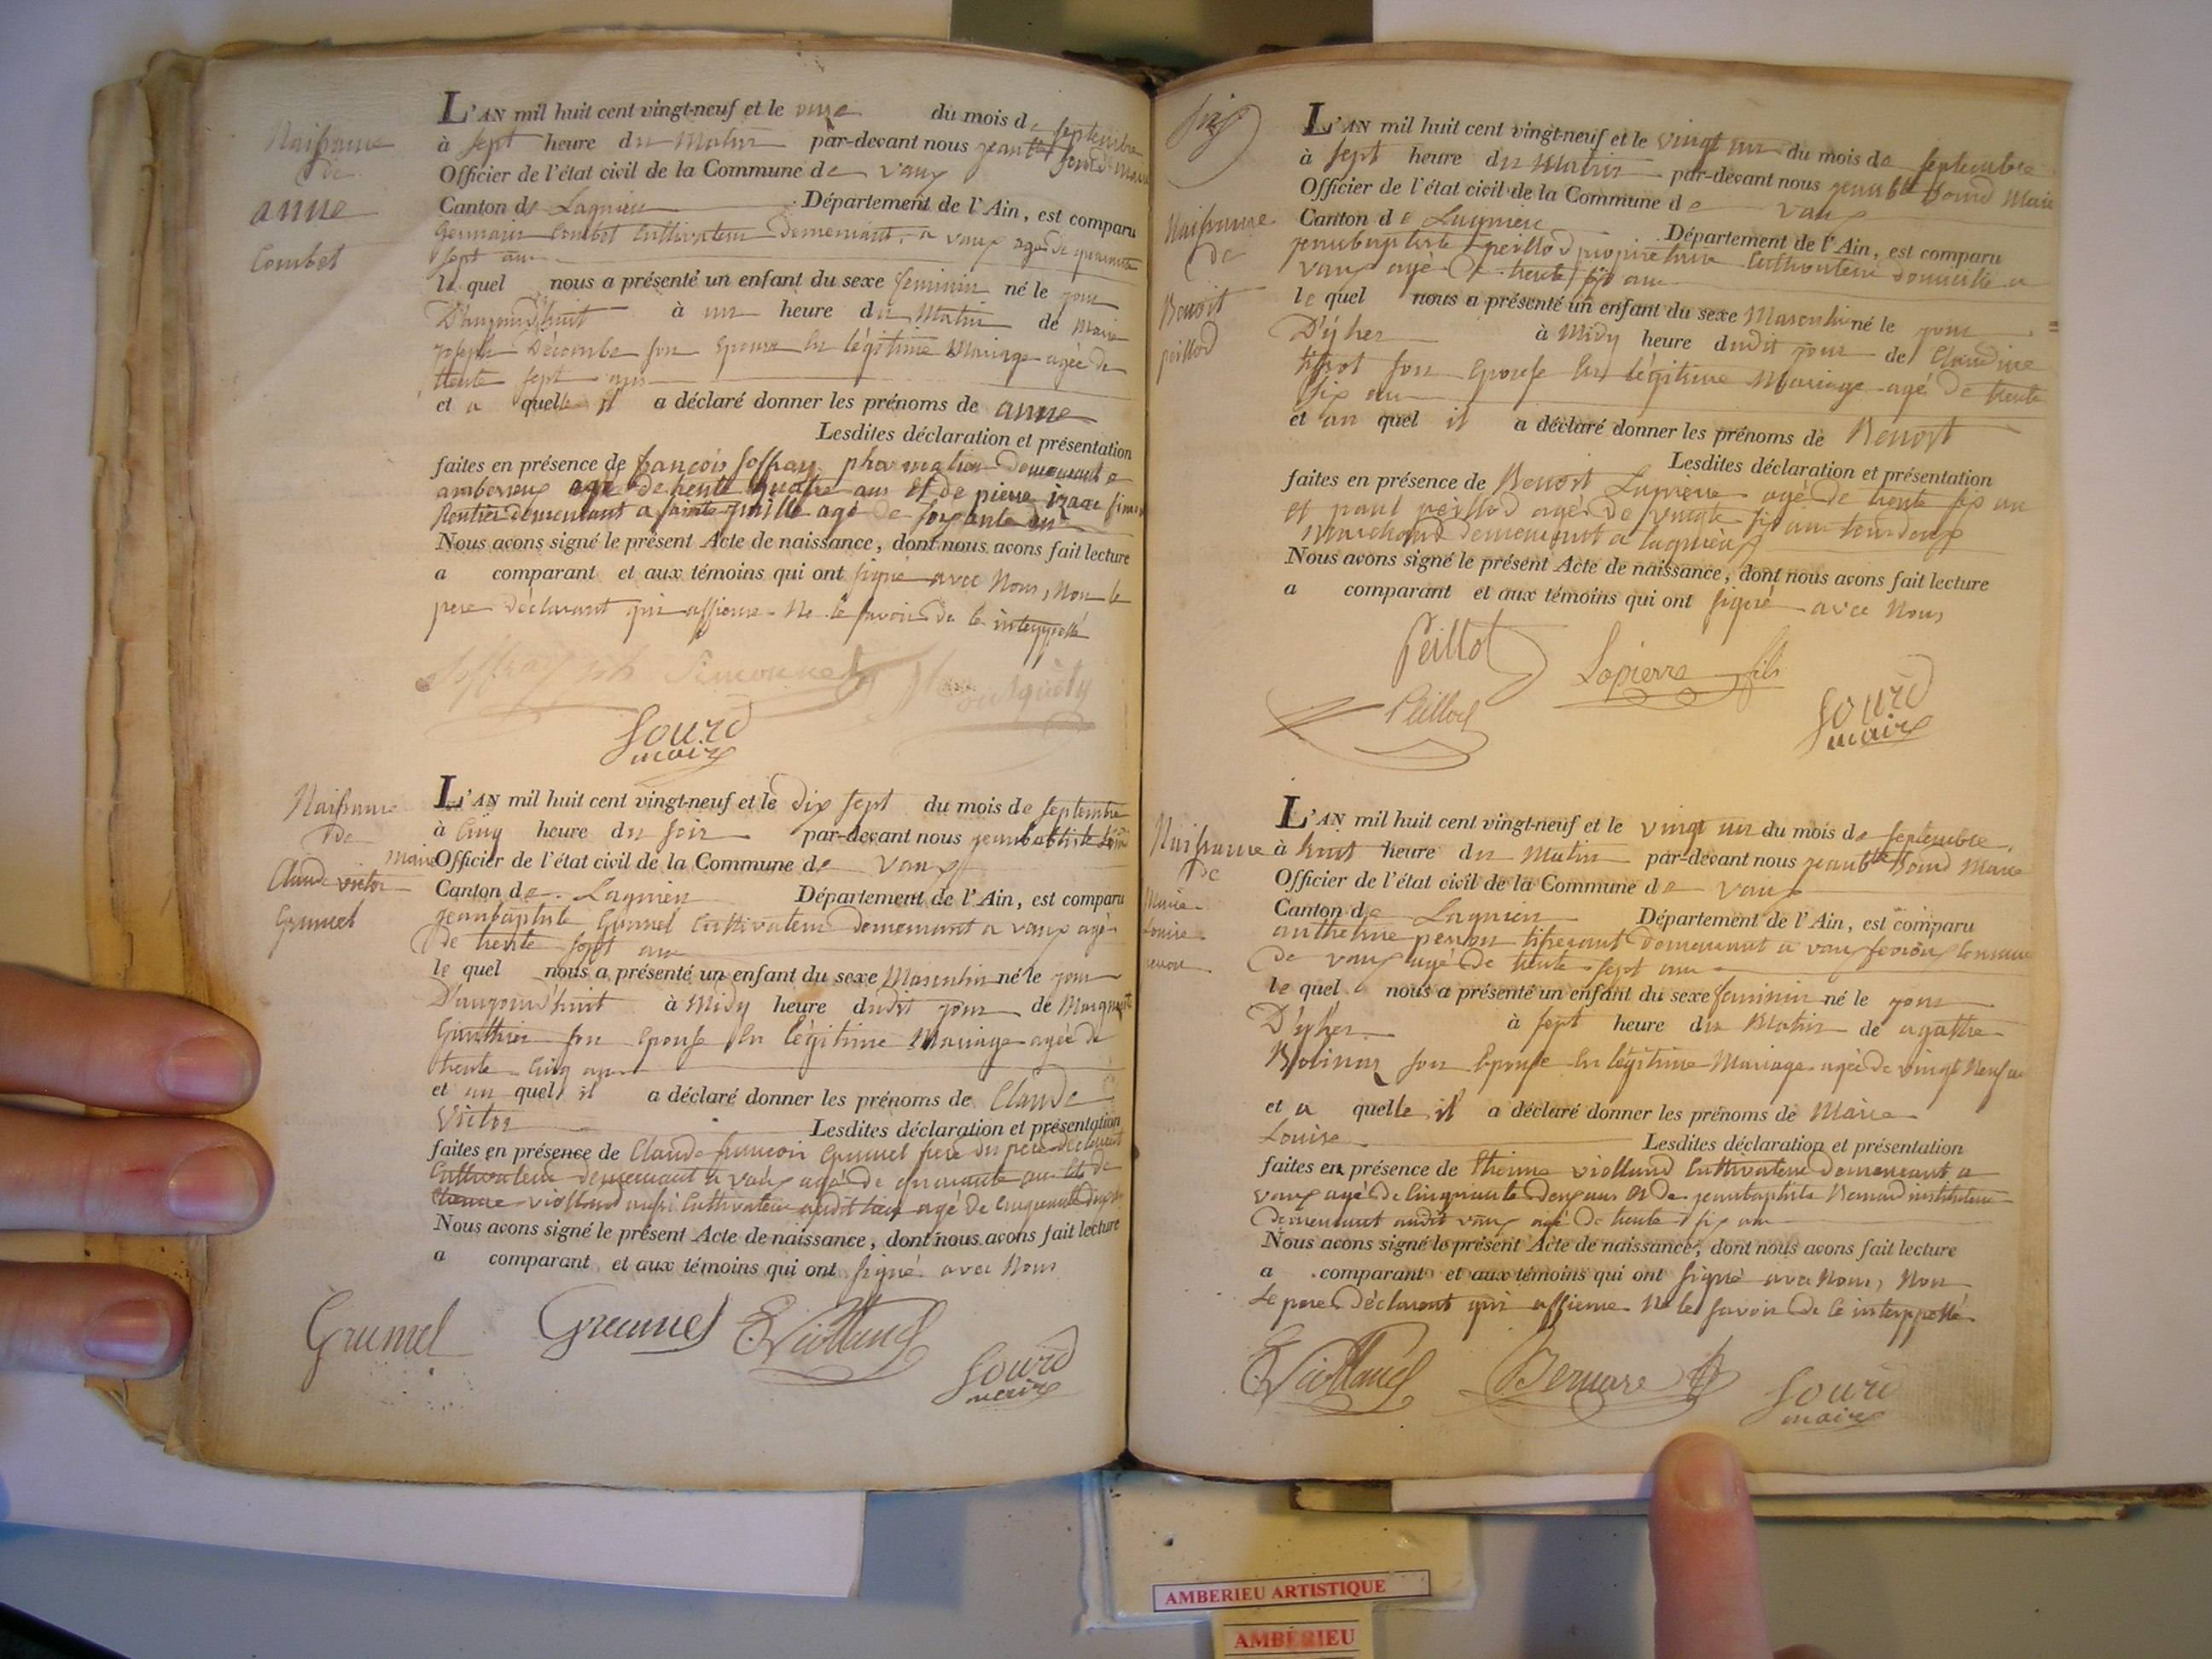 Naissance
de
anne
Combet
L'AN mil huit cent vingt-neuf et le onze du mois de septembre
à sept heure du Matin par-devant nous jean bte sourd Maire
Officier de l'état civil de la Commune de vaux
Canton de Lagnieu Département de l'Ain, est comparu
Germain Combet Cultivateur demeurant a vaux agé de quarante
sept ans
le quel nous a présenté un enfant du sexe feminin né le jour
D'aujourd'huit à un heure du Matin de Marie
joseph Décombe son Epouse en légitime Mariage agée de
trente sept ans
et a quelle il a déclaré donner les prénoms de anne
Lesdites déclaration et présentation
faites en présence de françois joffray demeurant a
amberieux agé de trente quatre ans et de pierre izaac
Rentier demeurant a sainte julille agé de soixante un
Nous avons signé le présent Acte de naissance, dont nous avons fait lecture
a comparant et aux témoins qui ont signé avec Nous, Non le
pere déclarant qui affierme Ne le savoir de ce interppellé
Sourd
maire
Naissance
de
Claude victor
Grumel
L'AN mil huit cent vingt-neuf et le dix sept du mois de septembre
à Cinq heure du soir par-devant nous jeanbaptiste sourd
maire Officier de l'état civil de la Commune de vaux
Canton de Lagnieu Département de l'Ain, est comparu
jeanbaptiste Grumel Cultivateur demeurant a vaux agé
de trente sept ans
le quel nous a présenté un enfant du sexe Masculin né le jour
D'aujourd'huit à Midy heure dudit jour de Marguerite
Gauthier son Epouse en légitime Mariage agée de
trente Cinq ans
et au quel il a déclaré donner les prénoms de Claude
Victor Lesdites déclaration et présentation
faites en présence de Claude françois Grumel frere du pere déclarant
Cultivateur demeurant a vaux agé de quarante ans et de
Etienne violland aussi Cultivateur audit lieu agé de Cinquante
Nous avons signé le présent Acte de naissance, dont nous avons fait lecture
a comparant et aux témoins qui ont signé avec Nous
Grumel Grumel E Violland Sourd
maire
Naissance
de
Benoit
peillod
L'AN mil huit cent vingt-neuf et le vingt un du mois de septembre
à sept heure du Matin par-devant nous jeanbte sourd Maire
Officier de l'état civil de la Commune de vaux
Canton de Lagnieu Département de l'Ain, est comparu
jeanbaptiste peillod propriétaire Cultivateur domicilié a
vaux agé de trente six ans
le quel nous a présenté un enfant du sexe Masculin né le jour
D'yher à Midy heure dudit jour de Claudine
tissot son Epouse en légitime Mariage agé de trente
six ans
et au quel il a déclaré donner les prénoms de Benoit
Lesdites déclaration et présentation
faites en présence de Benoit Lapierre agé de trente six ans
et paul peillod agé de vingt six ans tous deux
Marchand demeurant a lagnieux
Nous avons signé le présent Acte de naissance, dont nous avons fait lecture
a comparant et aux témoins qui ont signé avec Nous
Peillot Lapierre fils
Peillod Sourd
maire
Naissance
de
Marie
Louise
L'AN mil huit cent vingt-neuf et le vingt un du mois de septembre
à huit heure du Matin par-devant nous jeanbte sourd Maire
Officier de l'état civil de la Commune de vaux
Canton de Lagnieu Département de l'Ain, est comparu
anthelme tisserant demeurant a vaux fevroux commune
de vaux agé de trente sept ans
le quel nous a présenté un enfant du sexe feminin né le jour
D'yher à sept heure du Matin de agathe
son Epouse en légitime Mariage agée de vingt Neuf ans
et a quelle il a déclaré donner les prénoms de Marie
Louise Lesdites déclaration et présentation
faites en présence de Etienne violland Cultivateur demeurant a
vaux agé de Cinquante deux ans et de jeanbaptiste Bernard instituteur
demeurant audit vaux agé de trente six ans
Nous avons signé le présent Acte de naissance, dont nous avons fait lecture
a comparant et aux témoins qui ont signé avec Nous, Non
le pere déclarant qui affierme Ne le savoir de ce interppellé
E Violland Bernard Sourd
maire
AMBERIEU ARTISTIQUE
AMBÉRIEU